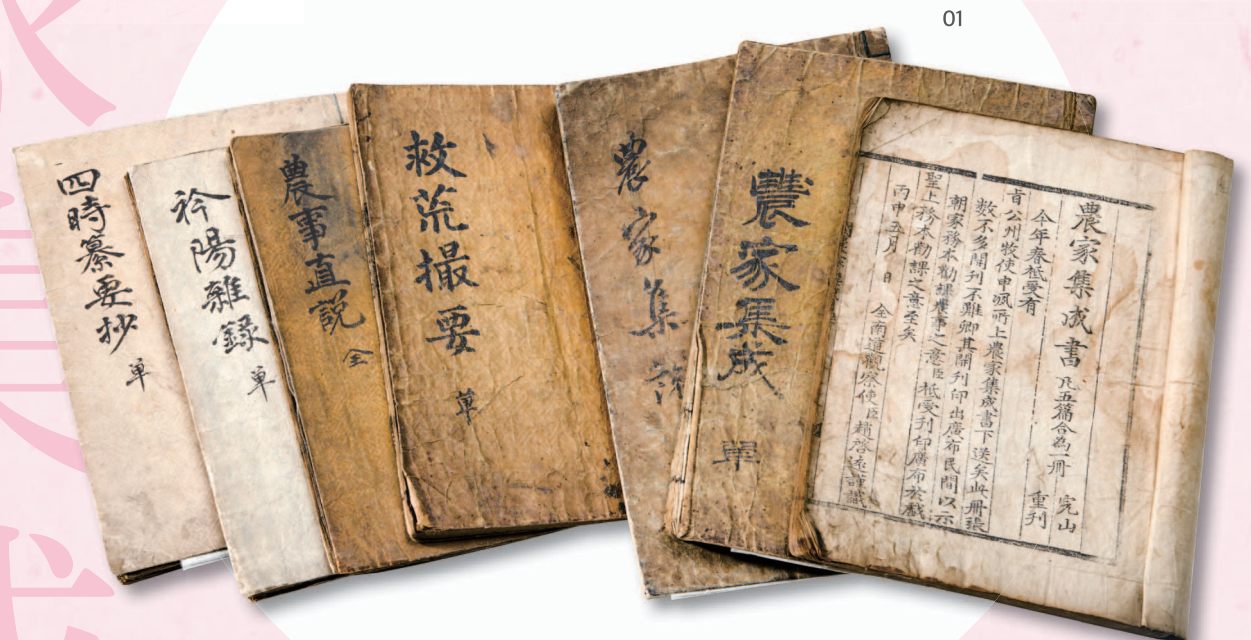 01
四時纂要抄 单
衿陽雜錄 单
農事直説 全
救荒撮要 単
農家集說
農家集成 單
農家集成書 凡五篇合為一冊 完山重刊
今年春祗受有
旨公州牧使申洬所上農家集成書下送矣此冊張
數不多開刊不難卿其開刊印出廣布民間以示
朝家務本勸課農事之意臣祗受刊印廣布於戲
聖上務本勸課之意至矣
丙申五月 日 全南道觀察使臣趙啓遠謹識